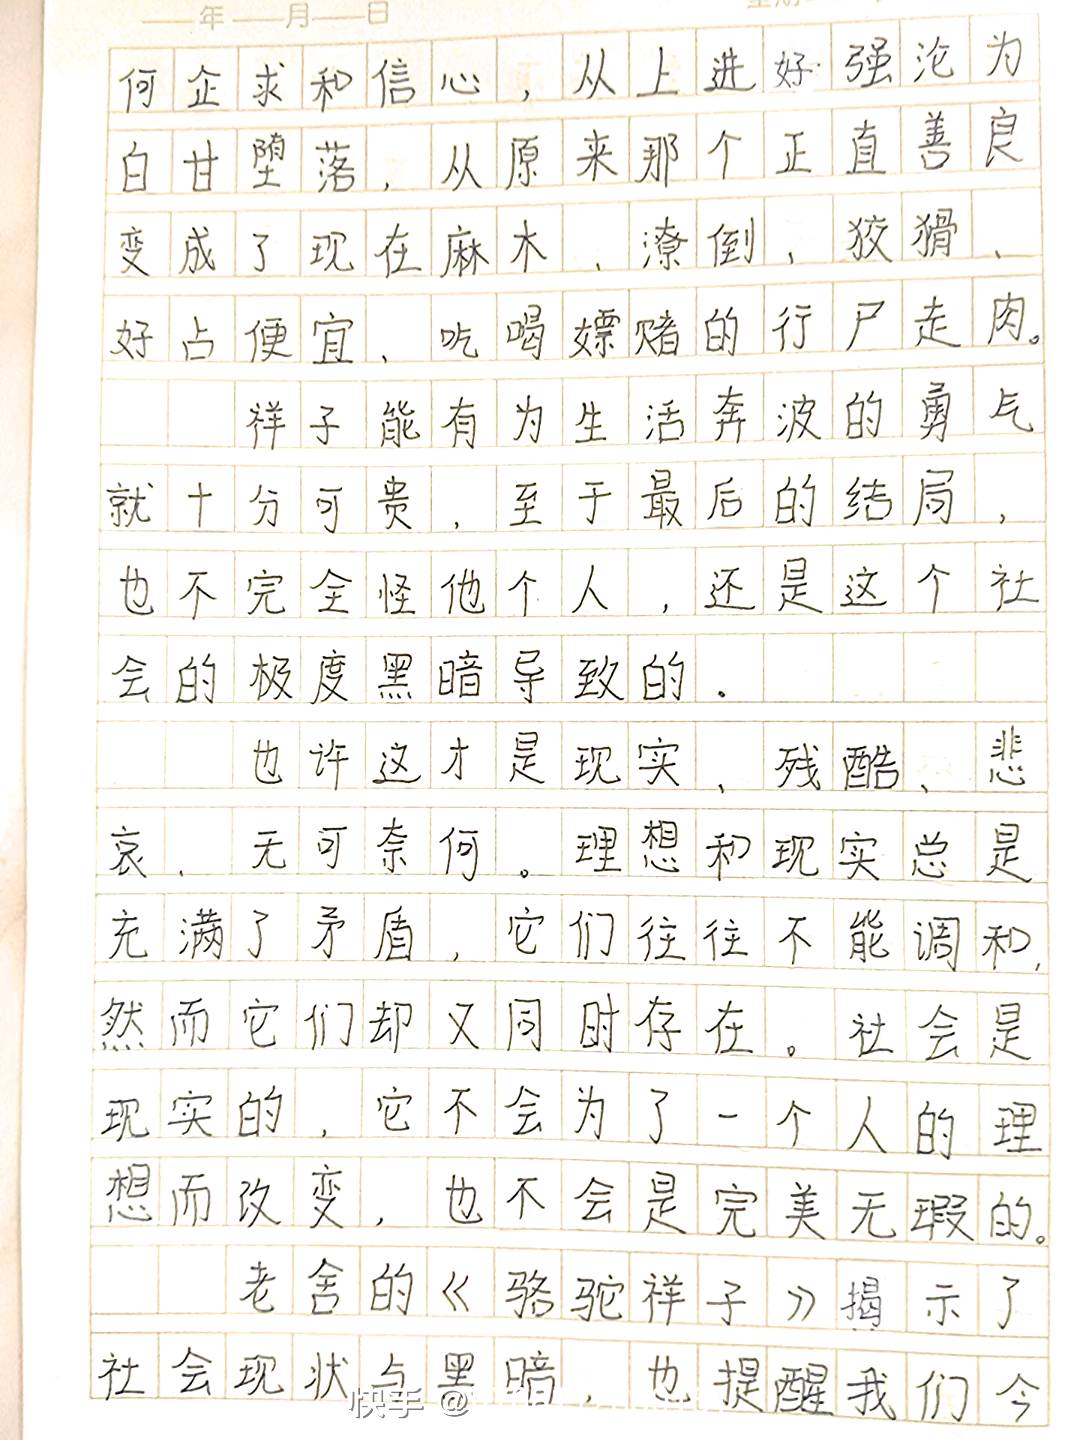 年 月 日
何企求和信心，从上进好强沦为
白甘堕落，从原来那个正直善良
变成了现在麻木、潦倒、狡猾、
好占便宜、吃喝嫖赌的行尸走肉。
祥子能有为生活奔波的勇气
就十分可贵，至于最后的结局，
也不完全怪他个人，还是这个社
会的极度黑暗导致的。
也许这才是现实、残酷、悲
哀、无可奈何。理想和现实总是
充满了矛盾，它们往往不能调和，
然而它们却又同时存在。社会是
现实的，它不会为了一个人的理
想而改变，也不会是完美无瑕的。
老舍的《骆驼祥子》揭示了
社会现状与黑暗，也提醒我们今
快手 @